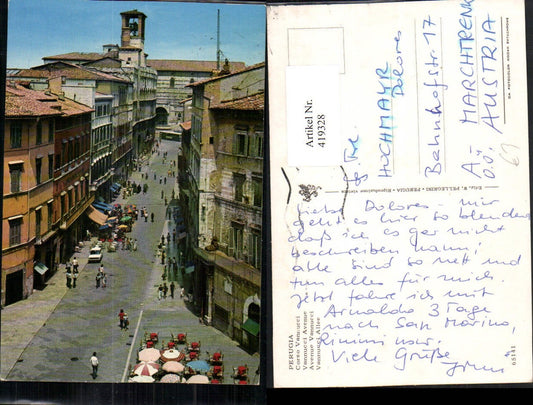 Artikel Nr.
419328
HOCHMAYR
Dolores
Bahnhofstr. 17
A-4 MARCHTRENK
O.Ö. AUSTRIA
69
Liebe Dolores mir
geht es hier so blendend
daß ich es gar nicht
beschreiben kann,
alle sind so nett und
tun alles für mich.
Jetzt fahre ich mit
Arnaldo 3 Tage
nach San Marino,
Rimini
Viele Grüße
PERUGIA
Corso Vannucci
Vannucci Avenue
Avenue Vannucci
Vannucci Allee
PELLEGRINI - PERUGIA - Riproduzione vietata
65141